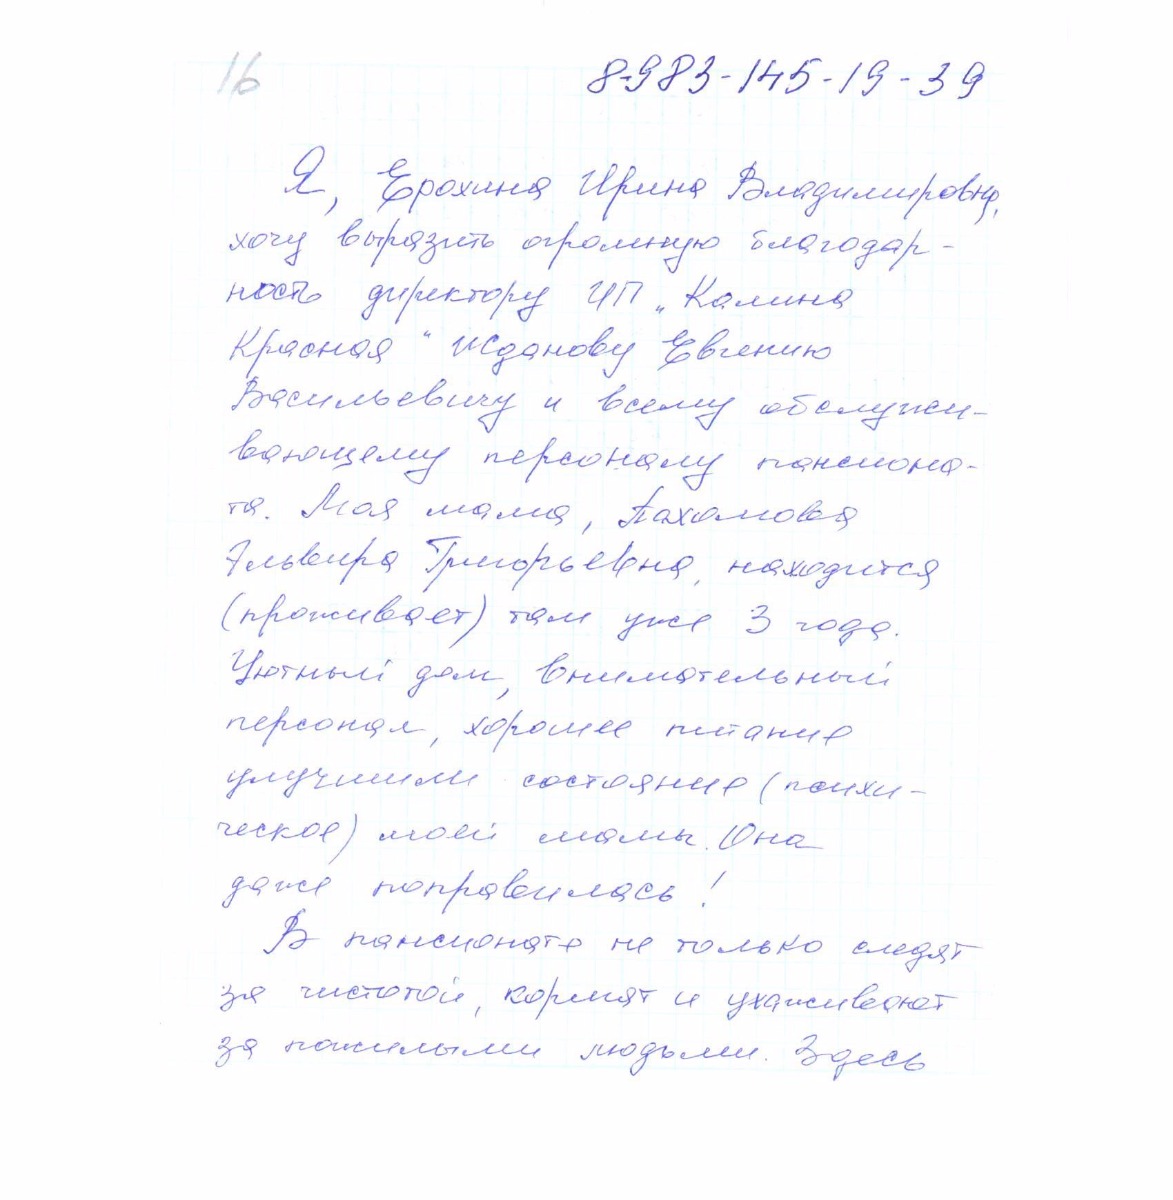 16
8-983-145-19-39
Я, Ерохина Ирина Владимировна,
хочу выразить огромную благодар-
ность директору ИП „Калина
Красная" Жданову Евгению
Васильевичу и всему обслужи-
вающему персоналу пансиона-
та. Моя мама, Пахомова
Эльвира Григорьевна, находится
(проживает) там уже 3 года.
Уютный дом, внимательный
персонал, хорошее питание
улучшили состояние (психи-
ческое) моей мамы. Она
даже поправилась!
В пансионате не только следят
за чистотой, кормят и ухаживают
за пожилыми людьми. Здесь